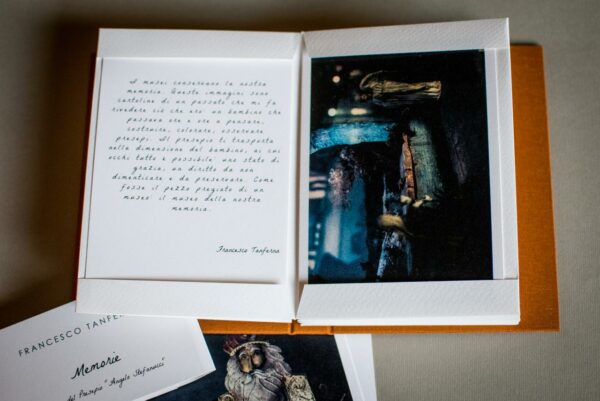 I musei conservano la nostra
memoria. Queste immagini sono
cartoline di un passato che mi fa
rivedere ciò che ero: un bambino che
passava ore e ore a pensare,
costruire, colorare, osservare
presepi. Il presepio ti trasporta
nella dimensione del bambino, ai cui
occhi tutto è possibile: uno stato di
grazia, un diritto da non
dimenticare e da preservare. Come
fosse il pezzo pregiato di un
museo: il museo della nostra
memoria.
Francesco Tanferna
FRANCESCO TANFER
Memorie
del Presepio "Angelo Stefanucci"